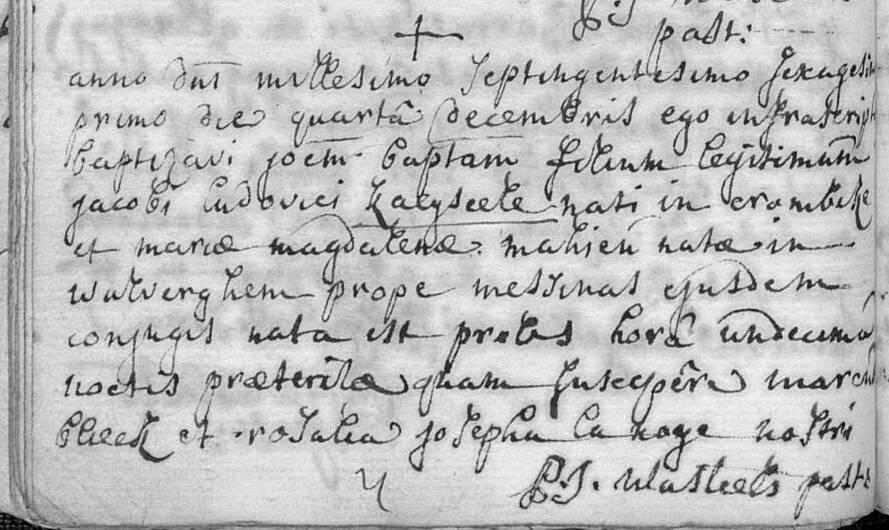 past:
anno dni millesimo septingentesimo sexagesi
primo die quartâ decembris ego infrascript
baptizavi joem baptam filium legitimum
jacobi ludovici Kacyscele nati in crombeke
et mariæ magdalenæ mahieu natæ in
wulverghem prope messinas ejusdem
conjugis nata est proles horâ undecimâ
noctis præteritæ quam susceperê marcus
bleek et rosalia josepha la noye nostri
P.J. Wasteels past: